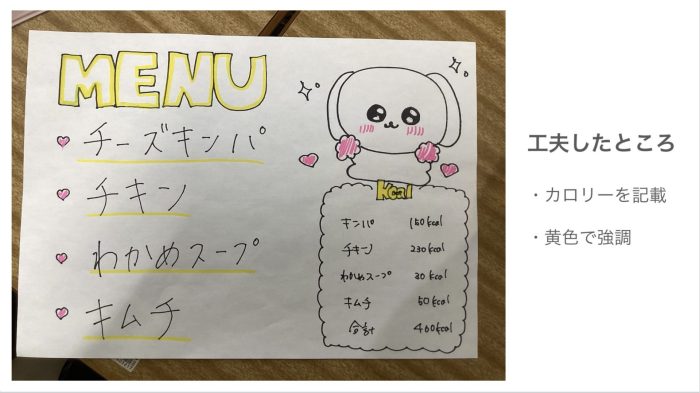 MENU
チーズキンパ
チキン
わかめスープ
キムチ
kcal
キンパ 150kcal
チキン 230kcal
わかめスープ 30kcal
キムチ 50kcal
合計 460kcal
工夫したところ
・カロリーを記載
・黄色で強調